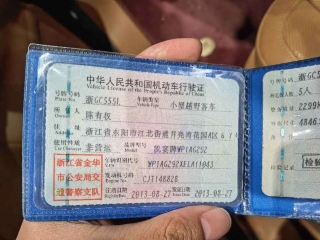 中华人民共和国机动车行驶证
Vehicle License of the People's Republic of China
号牌号码 浙GC555L 车辆类型 小型越野客车
Plate No. Vehicle Type
所有人 陈有根
Owner
住址 浙江省东阳市江北街道
Address
使用性质 非营运 品牌型号 凯宴牌WP1AG292
Use Character Model
浙江省金华
市公安局交
通警察支队
车辆识别代号 WP1AG2923ELA11043
VIN
发动机号码 CJT148828
Engine No.
注册日期 2013-08-27 发证日期 2013-08-27
Register Date Issue Date
浙GC55
5人
2299K
4846
检验